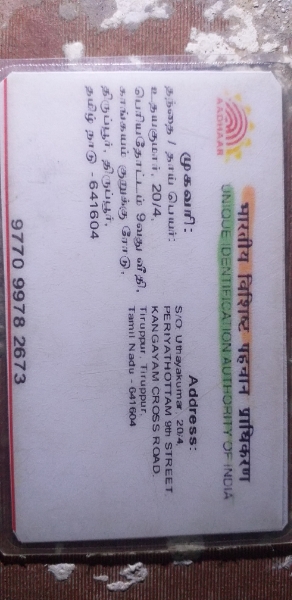 AADHAAR
भारतीय विशिष्ट पहचान प्राधिकरण
UNIQUE IDENTIFICATION AUTHORITY OF INDIA
முகவரி:
தந்தை / தாய் பெயர்:
உதயகுமார், 20/4,
பெரியதோட்டம் 9வது வீதி,
காங்கயம் குறுக்கு ரோடு,
திருப்பூர், திருப்பூர்,
தமிழ் நாடு - 641604
Address:
S/O Uthayakumar, 20/4,
PERIYATHOTTAM 9th STREET
KANGAYAM CROSS ROAD,
Tiruppur, Tiruppur,
Tamil Nadu - 641604
9770 9978 2673